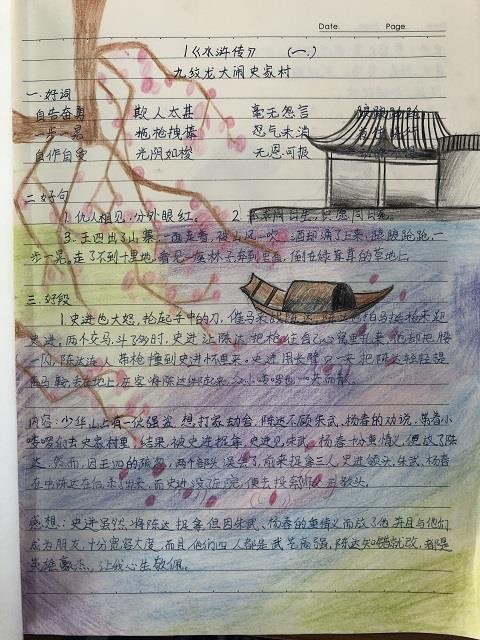 Date. Page.
1《水浒传》 (一)
九纹龙大闹史家村
一.好词
自告奋勇 欺人太甚 毫无怨言 踉踉跄跄
一步一晃 拖枪拽棒 忍气未消
自作自受 光阴如梭 无恩可报
二 好句
1. 仇人相见,分外眼红。 2. 不求同日生,只愿同日死。
3. 王四出了山寨,一面走着,被山风一吹,酒却涌了上来,踉踉跄跄,一
步一晃,走了不到十里地,看见一座林子,奔到里面,倒在绿茸茸的草地上。
三 好段
1. 史进也大怒,抡起手中的刀,催马来战陈达。陈达也拍马挺枪来迎
史进。两个交马,斗了多时,史进让陈达把枪往自己心窝里扎来,他却把腰
一闪,陈达连人带枪撞到史进怀里来。史进用长臂只一夹,把陈达轻轻提
马鞍,丢在地上,庄客将陈达绑起来,众小喽啰也一哄而散。
内容:少华山上有一伙强盗,想打家劫舍,陈达不顾朱武、杨春的劝说,带着小
喽啰们去史家村里,结果,被史进捉拿。史进见朱武、杨春十分重情义,便放了陈
达,然而,因王四的疏忽,两个都头误会了,前来捉拿三人,史进领头,朱武、杨春
在中陈达在后杀了出来,而史进没了庄院,便去投奔师父王教头。
感想:史进虽然将陈达捉拿,但因朱武、杨春的重情义而放了他,并且与他们
成为朋友,十分宽容大度,而且他们四人都是武艺高强,陈达知错就改,都是
英雄豪杰,让我心生敬佩。